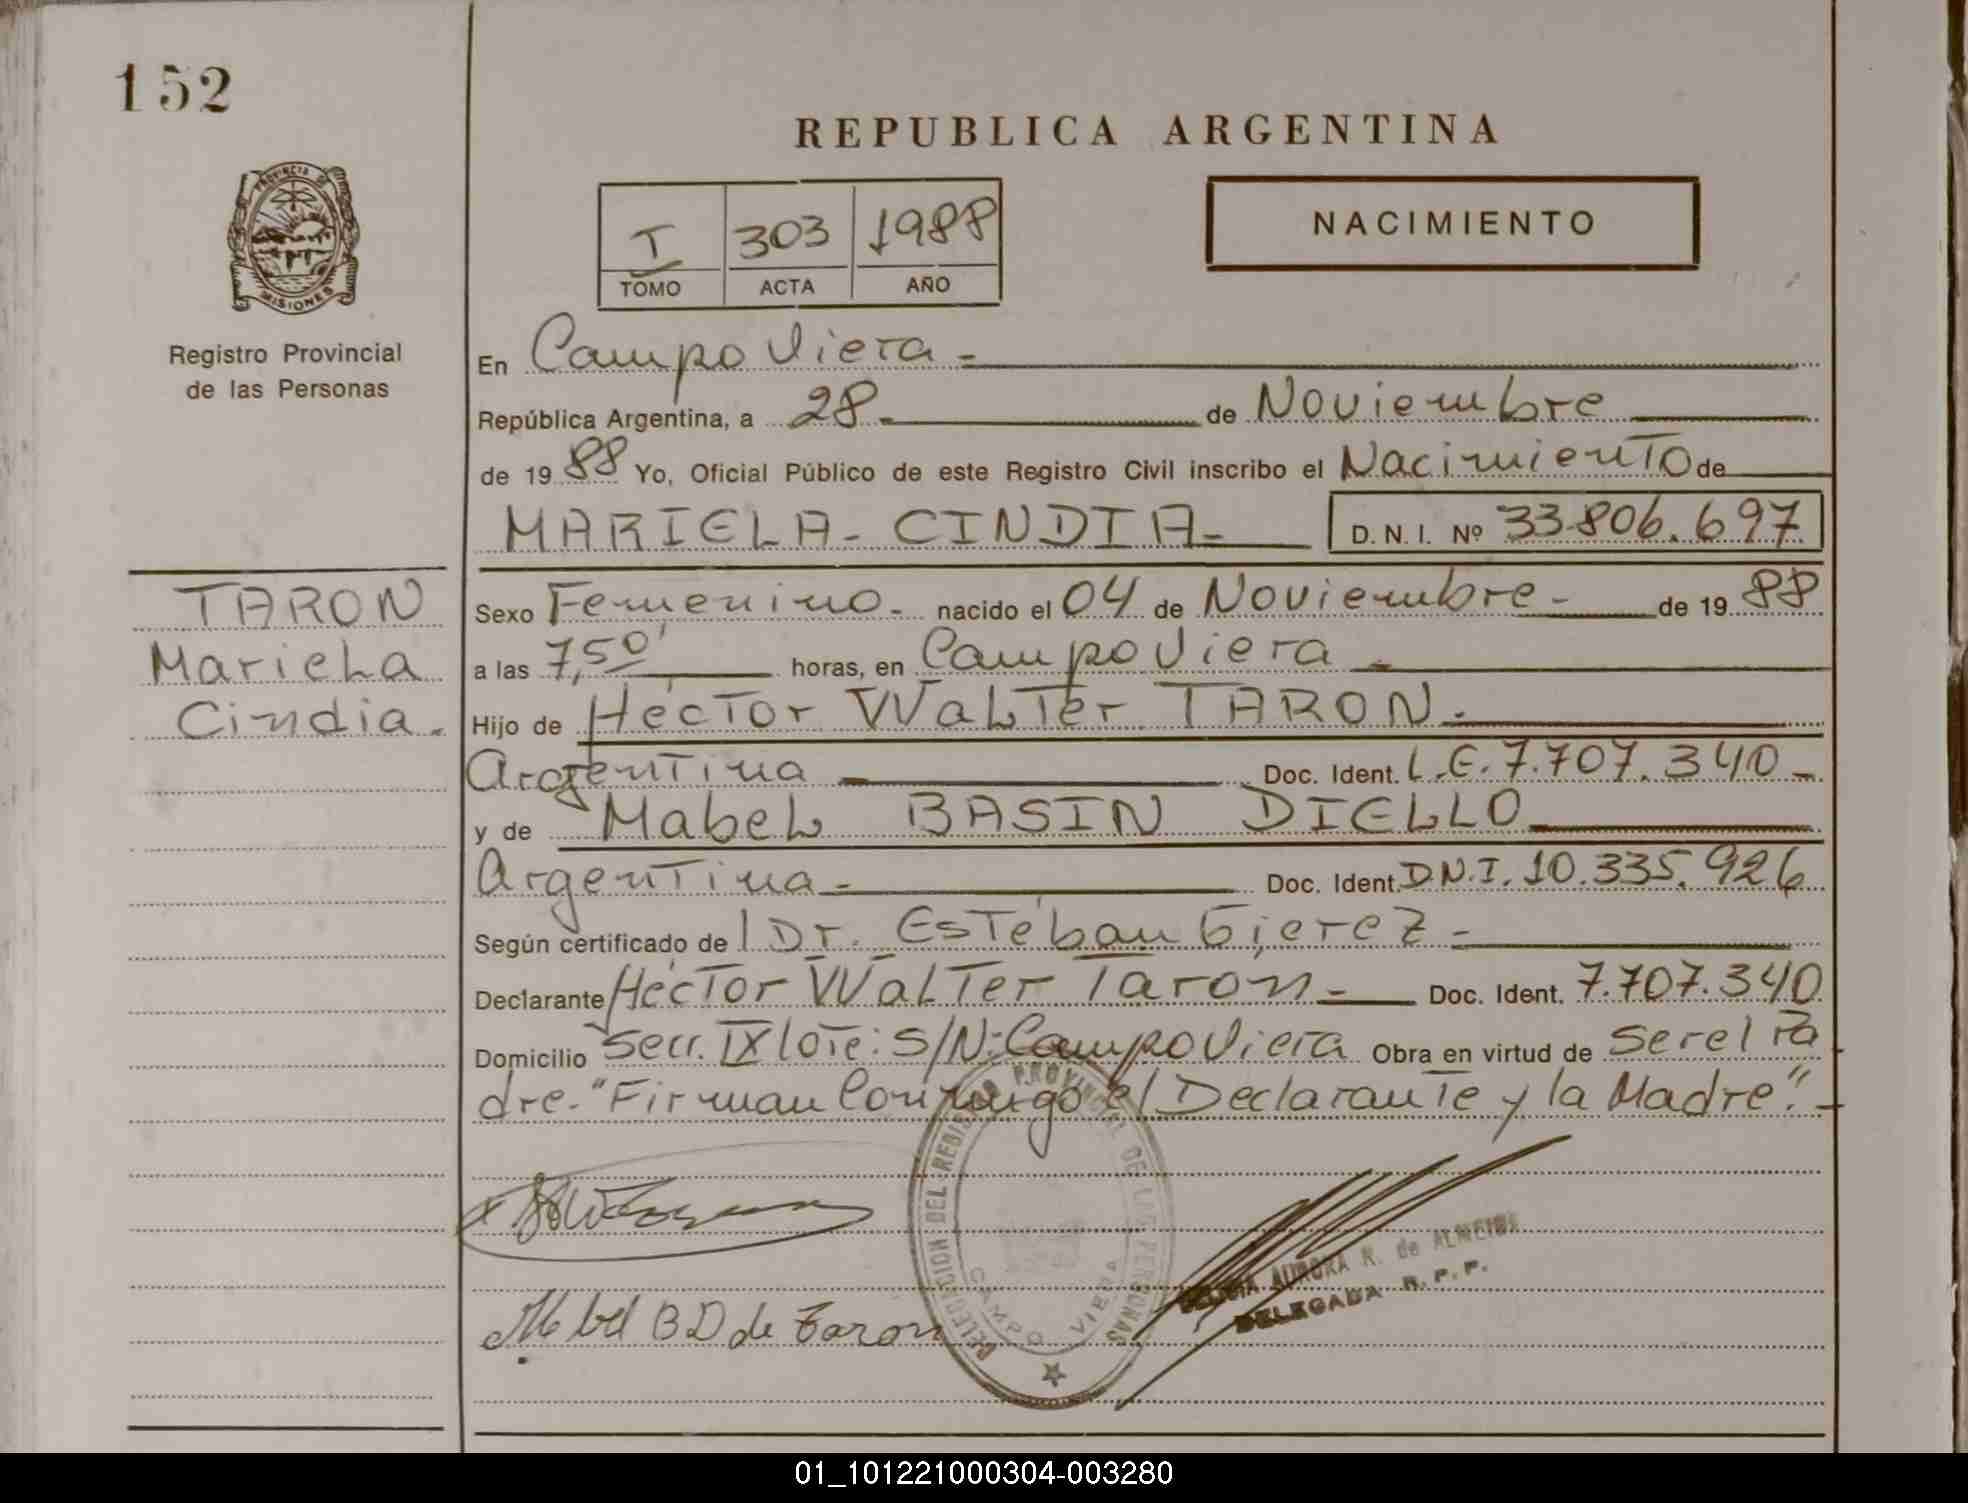 152
REPUBLICA ARGENTINA
PROVINCIA DE
MISIONES
Registro Provincial
de las Personas
I 303 1988
TOMO ACTA AÑO
NACIMIENTO
En Campo Viera -
República Argentina, a 28- de Noviembre
de 19 88 Yo, Oficial Público de este Registro Civil inscribo el Nacimiento de
MARIELA - CINDIA - D. N. I. Nº 33.806.697
TARON
Mariela
Cindia.
Sexo Femenino - nacido el 04 de Noviembre - de 19 88
a las 7,50' horas, en Campo Viera -
Hijo de Héctor Walter TARON.
Argentina Doc. Ident. L.E. 7.707.340 -
y de Mabel BASIN DIELLO
Argentina - Doc. Ident. D.N.I. 10.335.926
Según certificado de l Dr. Esteban -
Declarante Héctor Walter Taron - Doc. Ident. 7.707.340
Domicilio Secc. IX lote: S/N: Campo Viera Obra en virtud de ser el Pa
dre. "Firman Conmigo el Declarante y la Madre". -
DELEGACION DEL REGISTRO PROVINCIAL DE LAS PERSONAS
CAMPO VIERA
AURORA R. de ALMEIDA
DELEGADA R. P. P.
Mabel B D de Taron
01_101221000304-003280